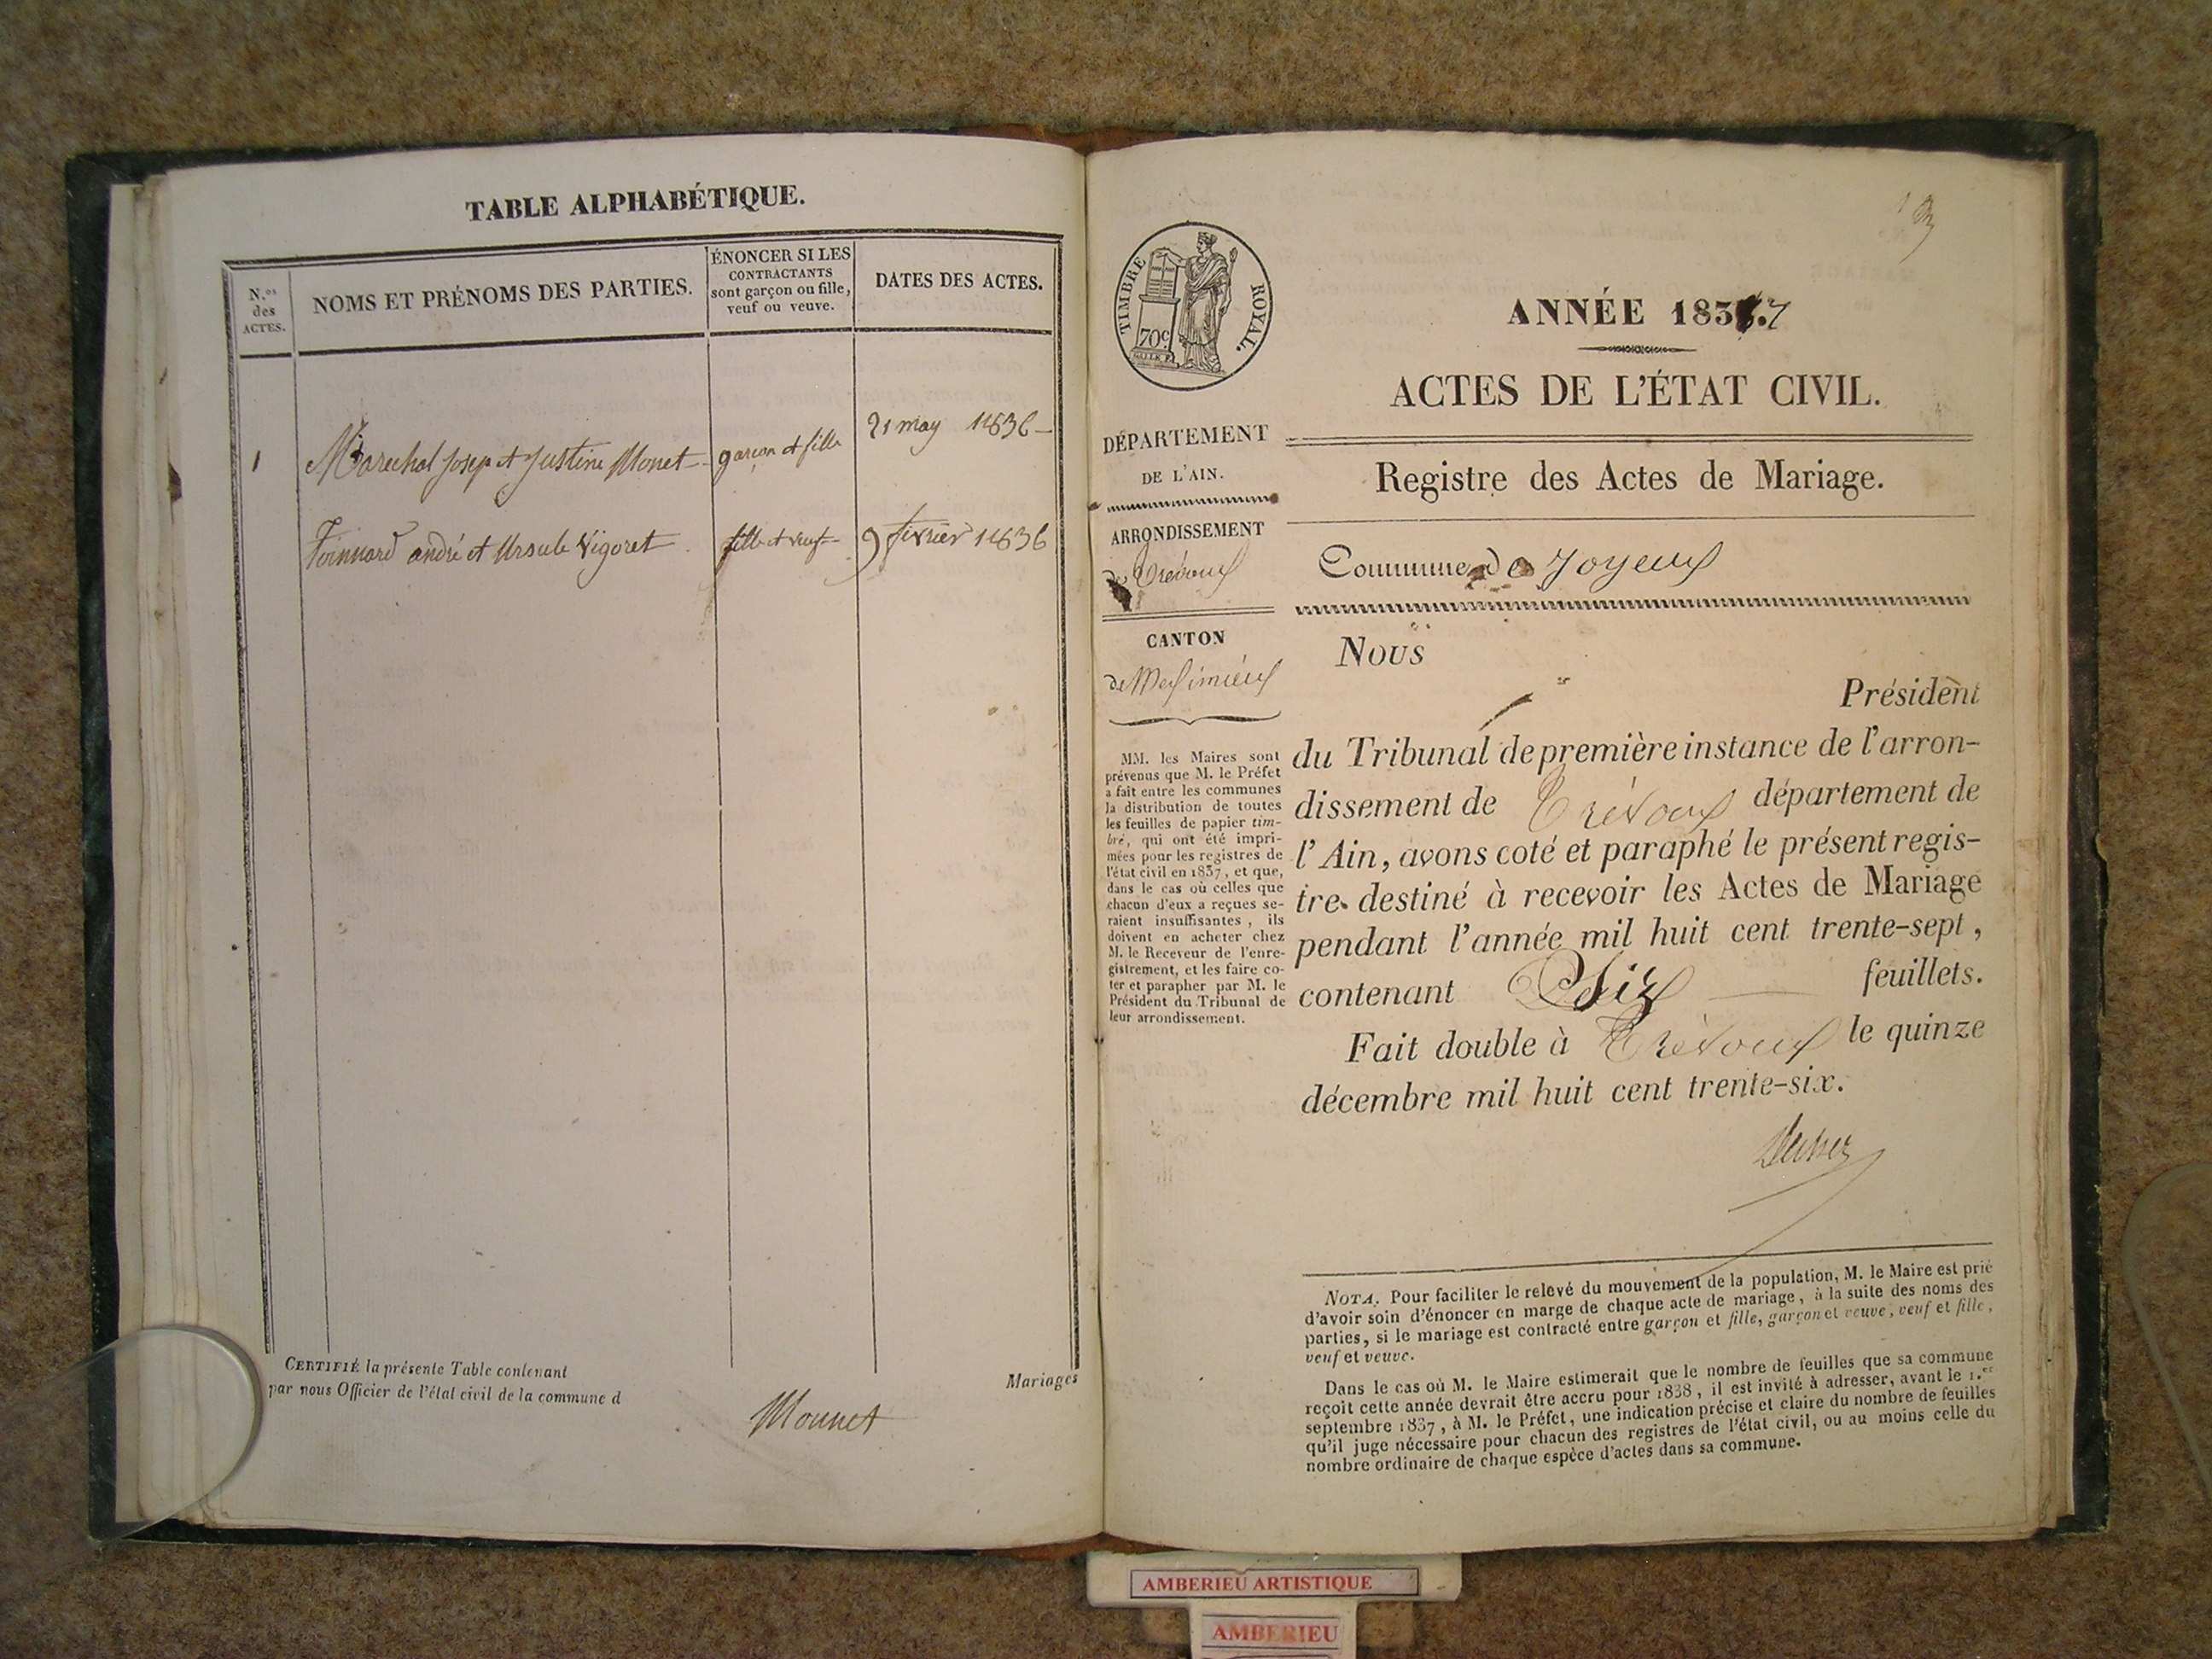 TABLE ALPHABÉTIQUE.
N.os des ACTES.
NOMS ET PRÉNOMS DES PARTIES.
ÉNONCER SI LES
CONTRACTANTS
sont garçon ou fille,
veuf ou veuve.
DATES DES ACTES.
1 Marechal Josep et Justine Monet garçon et fille 21 may 1836
Toinnard andré et Ursule Vigoret fille et veuf 9 février 1836
CERTIFIÉ la présente Table contenant
Mariages
par nous Officier de l'état civil de la commune d
Monnet
TIMBRE ROYAL.
70c
ANNÉE 1837
ACTES DE L'ÉTAT CIVIL.
DÉPARTEMENT
DE L'AIN.
Registre des Actes de Mariage.
ARRONDISSEMENT
de Trévoux
Commune de Joyeux
CANTON
de Meximieux
Nous
Président
du Tribunal de première instance de l'arron-
dissement de Trévoux département de
l'Ain, avons coté et paraphé le présent regis-
tre destiné à recevoir les Actes de Mariage
pendant l'année mil huit cent trente-sept,
contenant Six feuillets.
Fait double à Trévoux le quinze
décembre mil huit cent trente-six.
MM. les Maires sont
prévenus que M. le Préfet
a fait entre les communes
la distribution de toutes
les feuilles de papier tim-
bré, qui ont été impri-
mées pour les registres de
l'état civil en 1837, et que,
dans le cas où celles que
chacun d'eux a reçues se-
raient insuffisantes, ils
doivent en acheter chez
M. le Receveur de l'enre-
gistrement, et les faire co-
ter et parapher par M. le
Président du Tribunal de
leur arrondissement.
NOTA. Pour faciliter le relevé du mouvement de la population, M. le Maire est prié
d'avoir soin d'énoncer en marge de chaque acte de mariage, à la suite des noms des
parties, si le mariage est contracté entre garçon et fille, garçon et veuve, veuf et fille,
veuf et veuve.
Dans le cas où M. le Maire estimerait que le nombre de feuilles que sa commune
reçoit cette année devrait être accru pour 1838, il est invité à adresser, avant le 1.er
septembre 1837, à M. le Préfet, une indication précise et claire du nombre de feuilles
qu'il juge nécessaire pour chacun des registres de l'état civil, ou au moins celle du
nombre ordinaire de chaque espèce d'actes dans sa commune.
AMBERIEU ARTISTIQUE
AMBERIEU